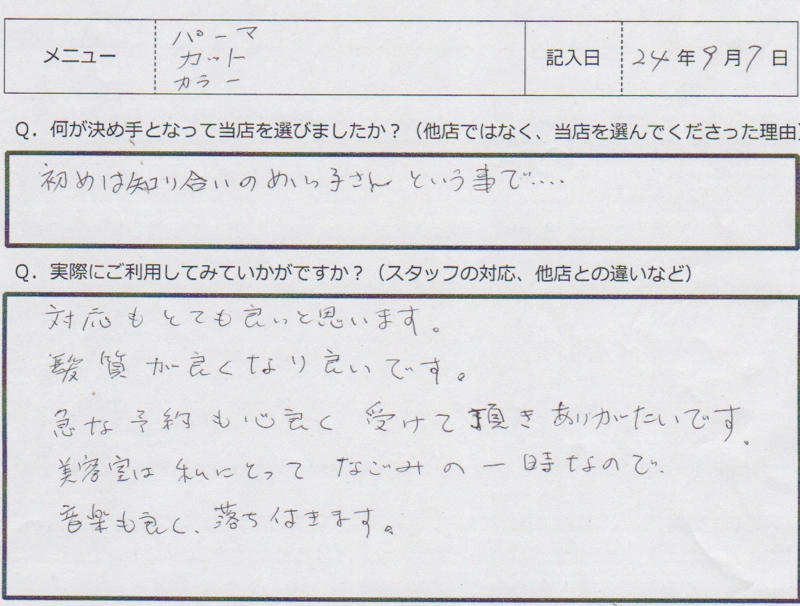 メニュー
パーマ
カット
カラー
記入日
24年9月7日
Q．何が決め手となって当店を選びましたか？（他店ではなく、当店を選んでくださった理由）
初めは知り合いのめいっ子さんという事で‥‥
Q．実際にご利用してみていかがですか？（スタッフの対応、他店との違いなど）
対応もとても良いと思います。
髪質が良くなり良いです。
急な予約も心良く受けて頂きありがたいです。
美容室は私にとってなごみの一時なので、
音楽も良く、落ち付きます。